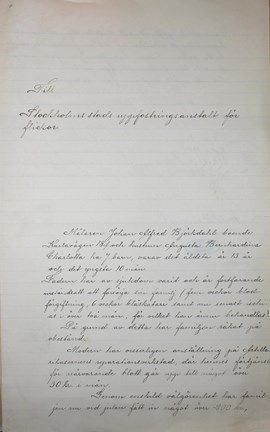 Till
Stockholms stads uppfostringsanstalt för
flickor
Målaren Johan Alfred Björkdahl boende
Karlavägen 189 och hustrun Augusta Bernhardina
Charlotta ha 7 barn, varav det äldsta är 13 år
och det yngsta 10 mån
Fadern har av sjukdom varit och är fortfarande
urståndsatt att försörja sin familj (fem veckor blod
förgiftning, 6 veckor samt nu senast
i om två mån, för vilket han ännu behandlas)
På grund av detta har familjen råkat på
obestånd.
Modern har visserligen anställning på
där hennes förtjänst
för närvarande blott går upp till något som
30 kr i mån
Genom enskild välgörenhet har familj
jen nu vid julen fått en något som